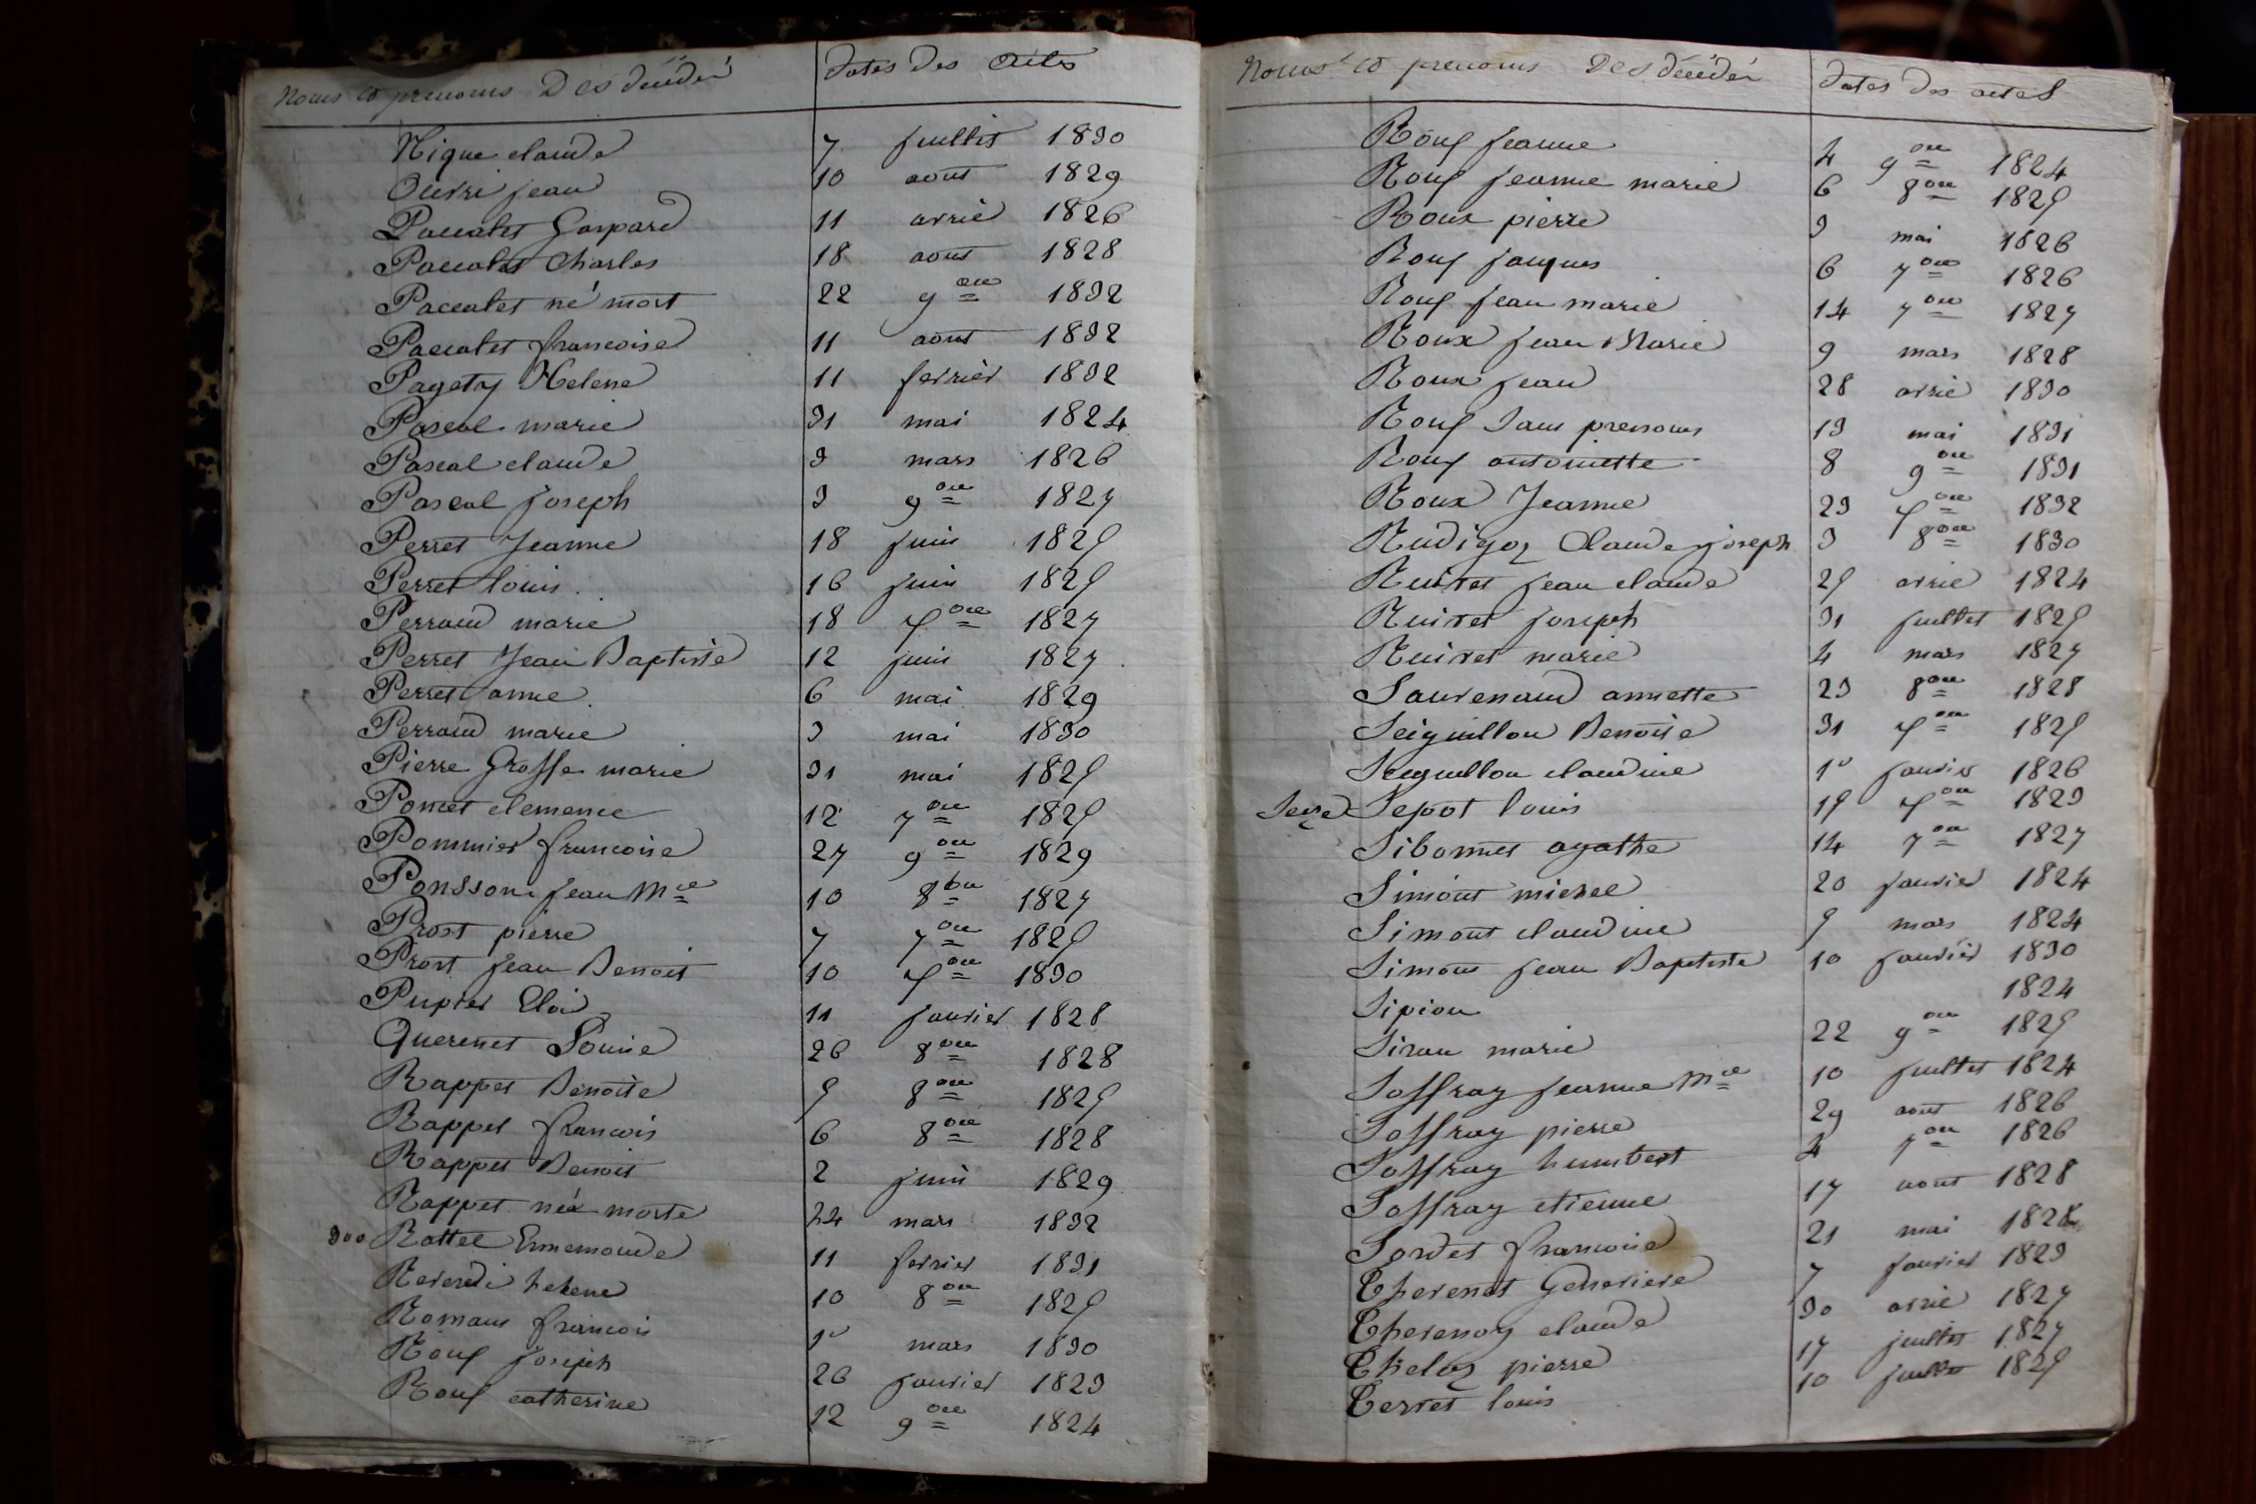 Noms et prenoms Des décédés Dates Des actes
Nique claude 7 juillet 1830
Ouvri jean 10 aout 1829
Paccalet Gaspard 11 avril 1826
Paccalet Charles 18 aout 1828
Paccalet né mort 22 9bre 1832
Paccalet francoise 11 aout 1832
Pagety Helene 11 fevrier 1832
Pascal marie 31 mai 1824
Pascal claude 3 mars 1826
Pascal joseph 3 9bre 1827
Perret Jeanne 18 juin 1825
Perret louis 16 juin 1825
Perraud marie 18 Xbre 1827
Perret Jean Baptiste 12 juin 1827
Perret anne 6 mai 1829
Perraud marie 3 mai 1830
Pierre Grosse marie 31 mai 1825
Poncet clemence 12 7bre 1825
Pommier francoise 27 9bre 1829
Ponsson jean Mie 10 8bre 1827
Prost pierre 7 7bre 1825
Prost jean Benoit 10 Xbre 1830
Pupier Eloi 11 janvier 1828
Querenet Louise 26 8bre 1828
Rappet Benoite 5 8bre 1825
Rappet francois 6 8bre 1828
Rappet Benoit 2 juin 1829
Rappet née morte 24 mars 1832
300 Rattel Ennemonde 11 fevrier 1831
Reverdi helene 10 8bre 1825
Romans francois 1er mars 1830
Roux joseph 26 janvier 1823
Roux catherine 12 9bre 1824
Noms et prenoms Des décédés Dates Des actes
Roux jeanne 4 9bre 1824
Roux jeanne marie 6 8bre 1825
Roux pierre 3 mai 1826
Roux jacques 6 7bre 1826
Roux jean marie 14 7bre 1827
Roux jean Marie 9 mars 1828
Roux jean 28 avril 1830
Roux Sans prenoms 13 mai 1831
Roux antoinette 8 9bre 1831
Roux Jeanne 23 Xbre 1832
Rudigoz Claude joseph 3 8bre 1830
Ruivet jean claude 25 avril 1824
Ruivet joseph 31 juillet 1825
Ruivet marie 4 mars 1827
Saurenaud annette 23 8bre 1828
Seiguillon Benoite 31 Xbre 1825
Seiguillon claudine 1er janvier 1826
Seve Sepot louis 15 Xbre 1823
Sibonnet agathe 14 7bre 1827
Simont michel 20 janvier 1824
Simont claudine 5 mars 1824
Simont jean Baptiste 10 janvier 1830
Sipion 1824
Siran marie 22 9bre 1825
Soffray jeanne Mie 10 juillet 1824
Soffray pierre 29 aout 1826
Soffray humbert 4 7bre 1826
Soffray etienne 17 aout 1828
Sordet francoise 21 mai 1828
Thevenet Genevieve 7 janvier 1823
Thevenoz claude 30 avril 1827
Theloz pierre 17 juillet 1827
Terret louis 10 juillet 1825